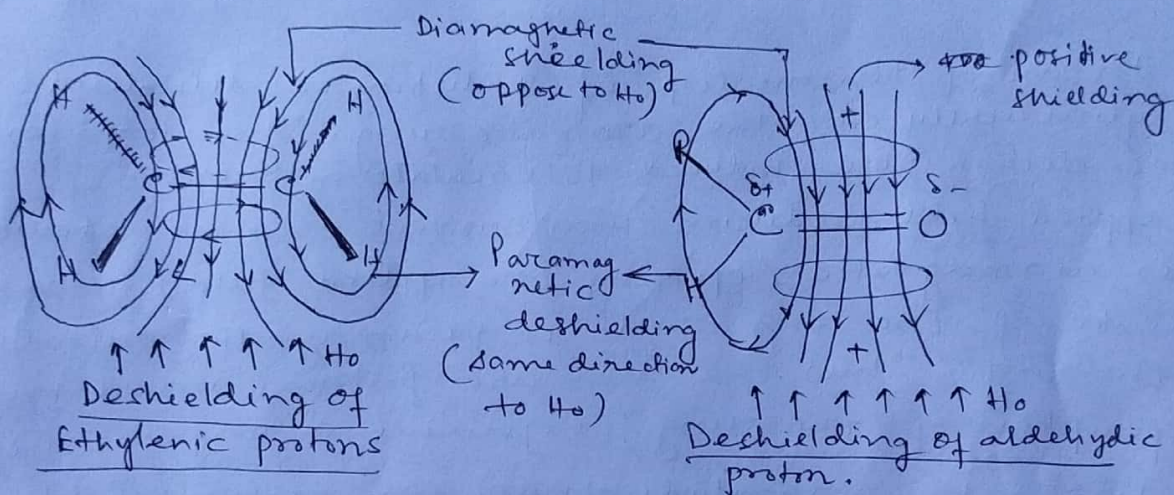 Diamagnetic
shielding
(oppose to Ho)
→ positive
shielding
H
H
C
C
H
H
R
δ+
C
H
δ-
O
+
+
Paramag
netic
deshielding
(same direction
to Ho)
↑ ↑ ↑ ↑ ↑ Ho
Deshielding of
Ethylenic protons
↑ ↑ ↑ ↑ ↑ ↑ Ho
Deshielding of aldehydic
proton.